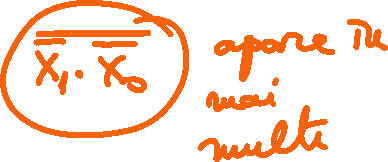 $\overline{\overline{X_1} \cdot \overline{X_0}}$ apare în
mai
multe